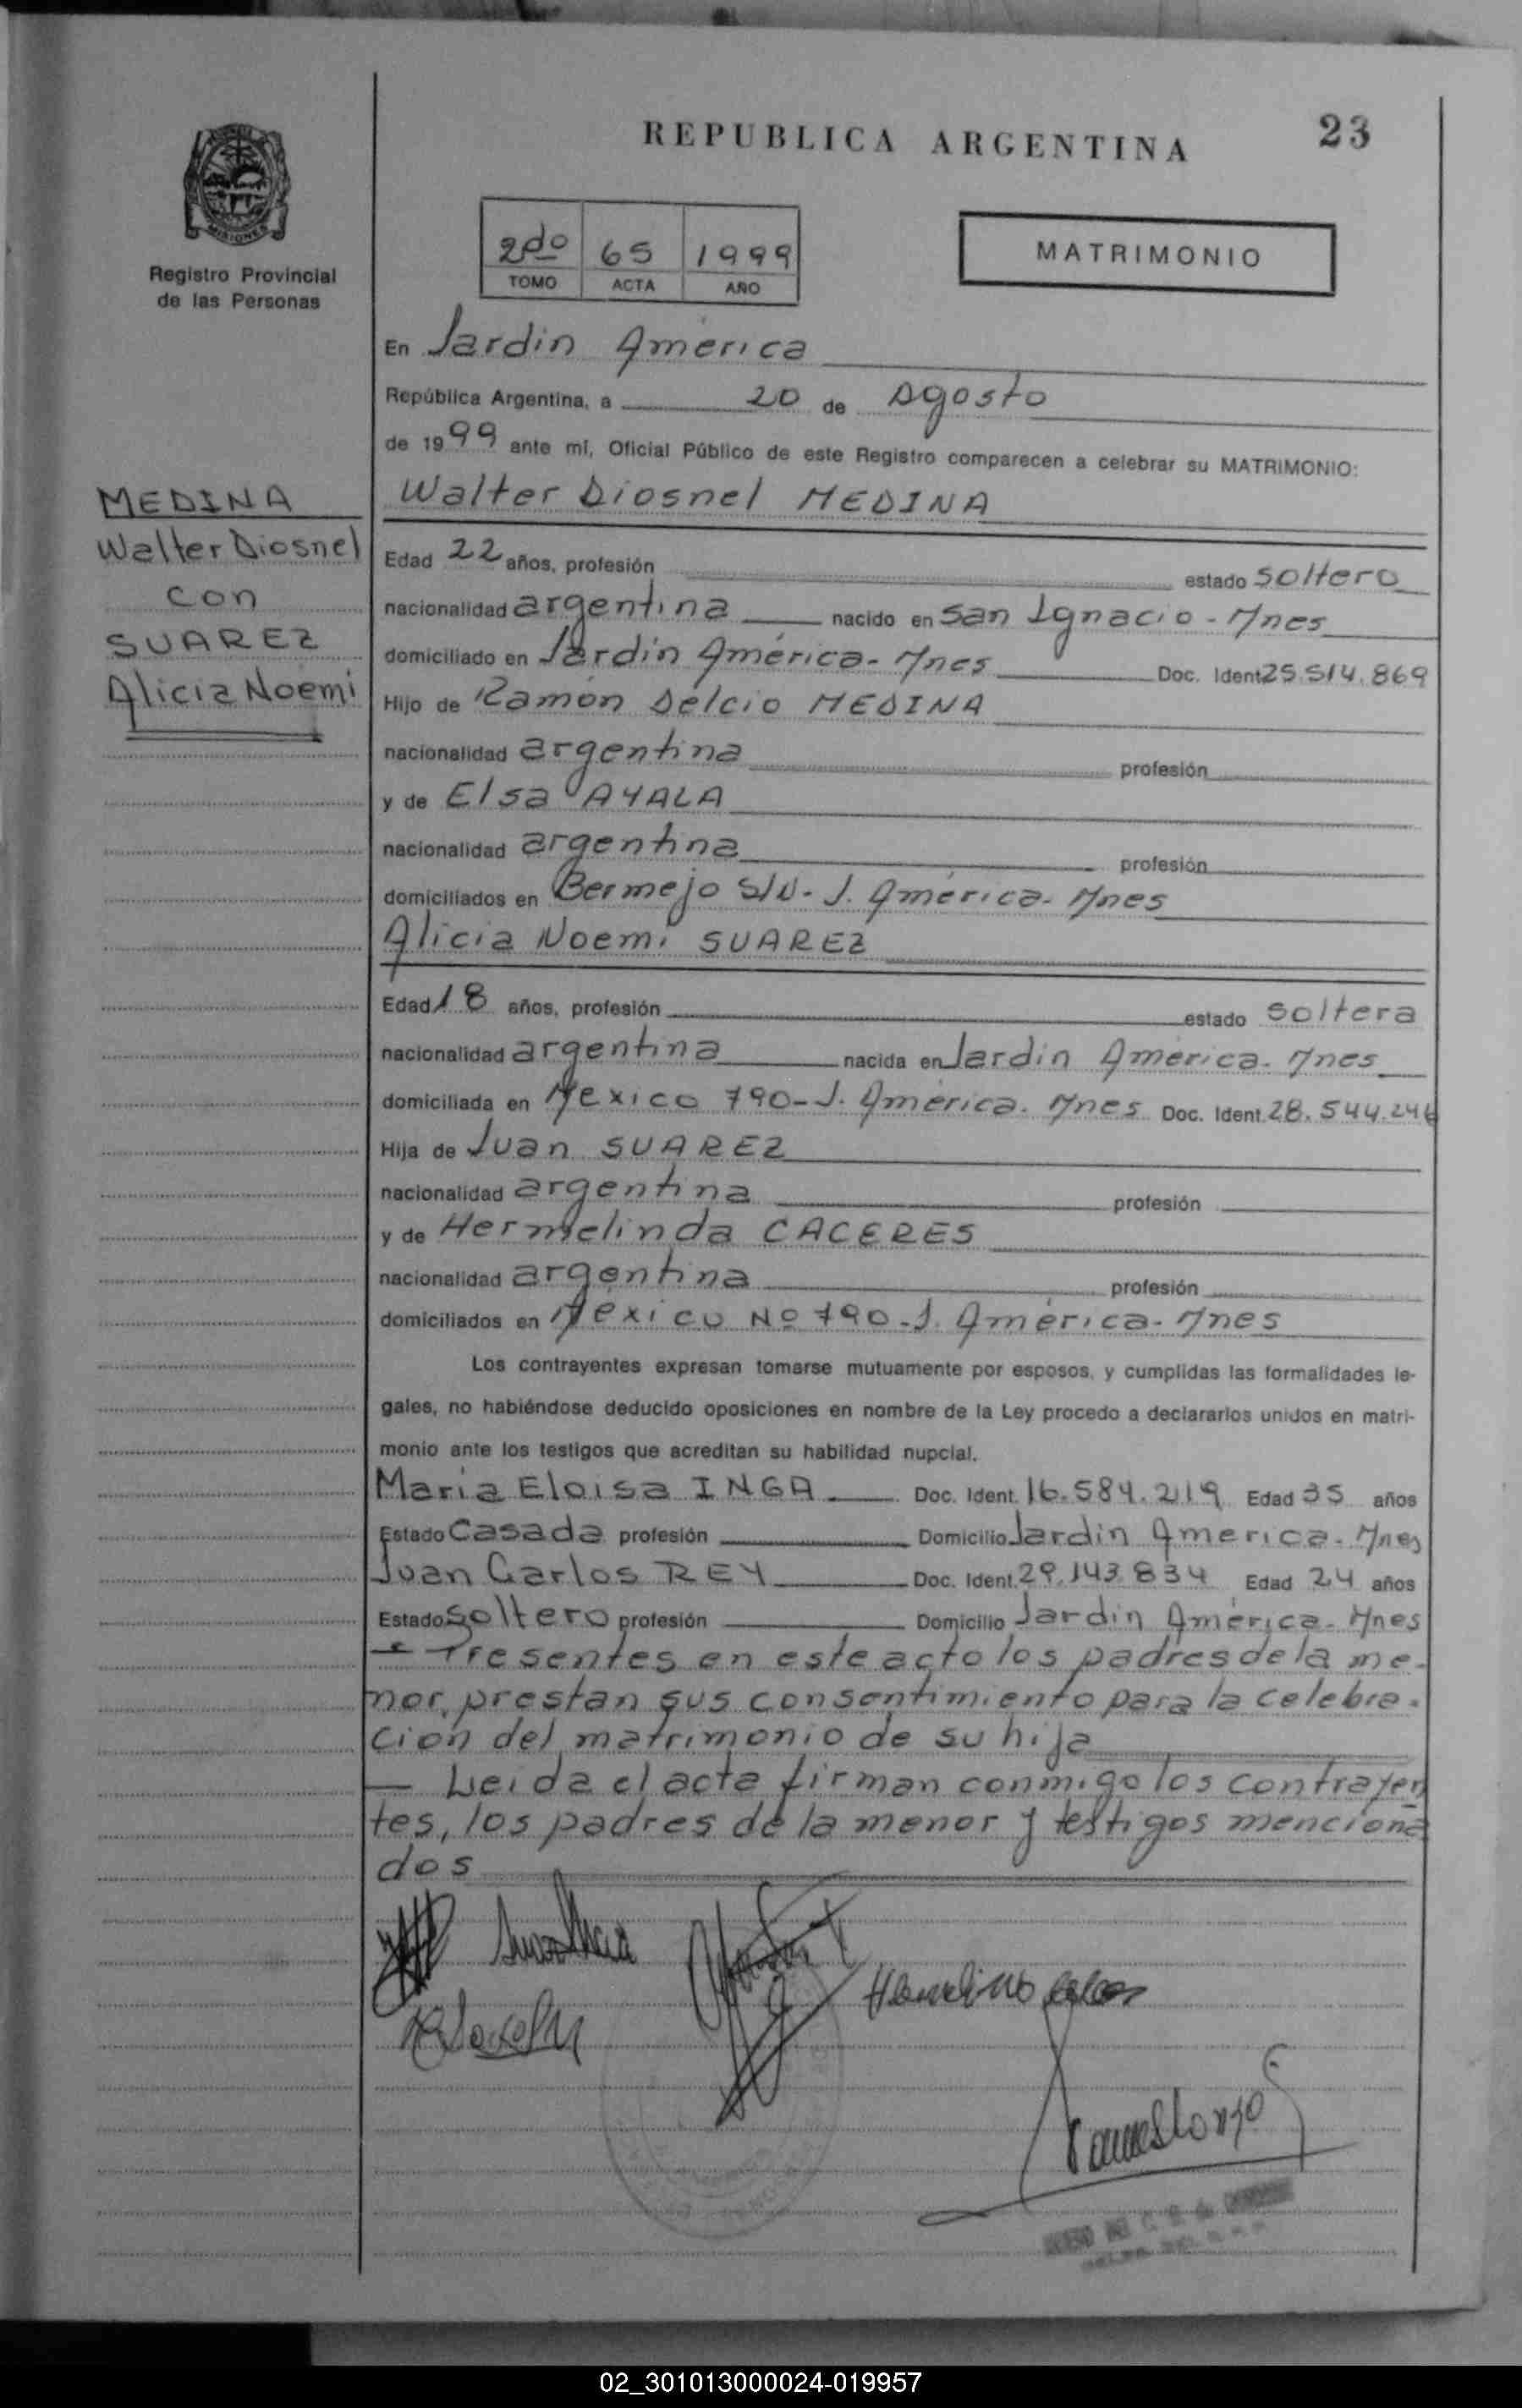 REPUBLICA ARGENTINA
23
MISIONES
Registro Provincial
de las Personas
2do 65 1999
TOMO ACTA AÑO
MATRIMONIO
En Jardin América
República Argentina, a 20 de Agosto
de 1999 ante mí, Oficial Público de este Registro comparecen a celebrar su MATRIMONIO:
MEDINA
Walter Diosnel
con
SUAREZ
Alicia Noemi
Walter Diosnel MEDINA
Edad 22 años, profesión estado soltero
nacionalidad argentina nacido en San Ignacio - Mnes
domiciliado en Jardin América - Mnes Doc. Ident 25.514.869
Hijo de Ramón Delcio MEDINA
nacionalidad argentina profesión
y de Elsa AYALA
nacionalidad argentina profesión
domiciliados en Bermejo S/N - J. América - Mnes
Alicia Noemi SUAREZ
Edad 18 años, profesión estado soltera
nacionalidad argentina nacida en Jardin América - Mnes
domiciliada en Mexico 790 - J. América - Mnes Doc. Ident. 28.544.246
Hija de Juan SUAREZ
nacionalidad argentina profesión
y de Hermelinda CACERES
nacionalidad argentina profesión
domiciliados en México Nº 790 - J. América - Mnes
Los contrayentes expresan tomarse mutuamente por esposos, y cumplidas las formalidades le-
gales, no habiéndose deducido oposiciones en nombre de la Ley procedo a declararlos unidos en matri-
monio ante los testigos que acreditan su habilidad nupcial.
Maria Eloisa INGA Doc. Ident. 16.584.219 Edad 35 años
Estado Casada profesión Domicilio Jardin America - Mnes
Juan Carlos REY Doc. Ident. 29.143.834 Edad 24 años
Estado Soltero profesión Domicilio Jardin América - Mnes
— Presentes en este acto los padres de la me-
nor, prestan sus consentimiento para la celebra-
cion del matrimonio de su hija
— Leida el acta firman conmigo los contrayen
tes, los padres de la menor y testigos menciona
dos
02_301013000024-019957